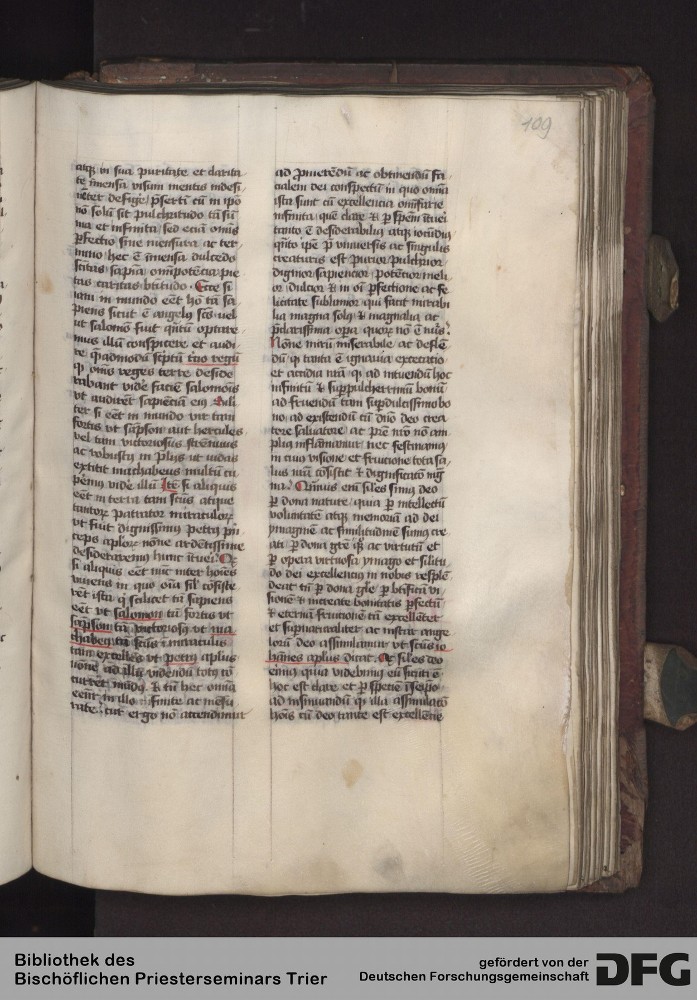 109
atq3 in sua puritate et clarita
te īmensa visum mentis indesi
nēter defige p̄serti cū in ipō
nō solū sit pulchritudo tā sū
ma et infinita sed eciā omīs
p̄fectio sine mensura ac ter
mino hec ē īmensa dulcedo
scītas sapīa omīpotēcia pie
tas caritas btītudo Ecce si
iam in mundo eēt hō tā sa
piens sicut ē angelꝰ scs vel
ut salomō fuit qntū optare
mus illū conspicere et audi
re qadmodū scptū tcio regū
ꝙ omīs reges terre deside
rabant vidē faciē salomōis
vt audirēt sapīēciā eiꝰ Sili
ter si eēt in mundo vir tam
fortis vt sāpson aut hercules
vel tam victoriosus strēnuus
ac robustꝰ in plijs ut iudas
extitit machabeus multū cu
pemꝰ vidē illū Itē si aliquis
eēt in terra tam scūs atque
tantorꝝ patrator miraculorꝝ
vt fuit dignissimꝰ petrꝰ pn
ceps aplorꝝ nōne ardētissime
desideraremus hunc ītueri
si aliquis eēt nūc inter hoīes
viuens in quo oīa sil cōsiste
rēt ista ꝙ scilicet tā sapiens
eēt vt salomon tā fortis vt
sāpson tā victoriosꝰ vt ma
chabeꝰ tā scūs ī miraculis
tam excellēs vt petrꝰ aplus
nōne ad illū videndū totꝰ cō
curret mūdꝰ & tn̄ hec omīa
eēnt in illo finite ac mēsu
rate cur ergo nō accendimur
ad ꝓmerēdū ac obtinendū fa
cialem dei conspectū in quo omīa
ista sunt cū excellencia omīfarie
infinita que clare & p spēm ītueri
tanto ē desiderabiliꝰ atq3 iocūdiꝰ
qnto ipē p vniuersis ac singulis
creaturis est purior pulchrior
dignior sapiencior potēcior meli
or dulcior & in oī pfectione ac fe
licitate sublimior qui facit mirabi
lia magna solꝰ & magnalia ac
pclarissima opera quorꝝ nō ē nūs
Nōne mirū miserabile ac deflē
dū ꝙ tanta ē ignauia excecatio
et accidia nrā ꝙ ad intuendū hoc
infinitū & suppulcherrimū bonū
ad fruendū tam supdulcissimo bo
no ad existendū cū dnō deo crea
tore saluatore ac prē nrō nō am
plius inflāmamur nec festinamꝰ
in cuiꝰ visione et fruitione tota sa
lus nrā cōsistit & dignificatō mg
na Quīuis enī siles simꝰ deo
p dona nature quia p intellectū
voluntatē atq3 memoriā ad dei
ymaginē ac similitudinē sumꝰ cre
ati p dona grē ac virtutū et
p opera virtuosa ymago et silitu
do dei excellenciꝰ in nobis resplē
deat tn̄ p dona glē p btificā vi
sionē & increate bonitatis pfectū
& eternū fruitionē tn̄ excellēcer
et supnaturaliter ac instar ange
lorū deo assimilamur vt scūs io
hānes aplus dicat Et siles deo
erimꝰ quia videbimꝰ eū sicuti ē
hoc est clare et p speciē
ad insinuandū ꝙ illa assimilatō
hoīs cū deo tante est excellētie
Bibliothek des
Bischöflichen Priesterseminars Trier
gefördert von der
Deutschen Forschungsgemeinschaft
DFG